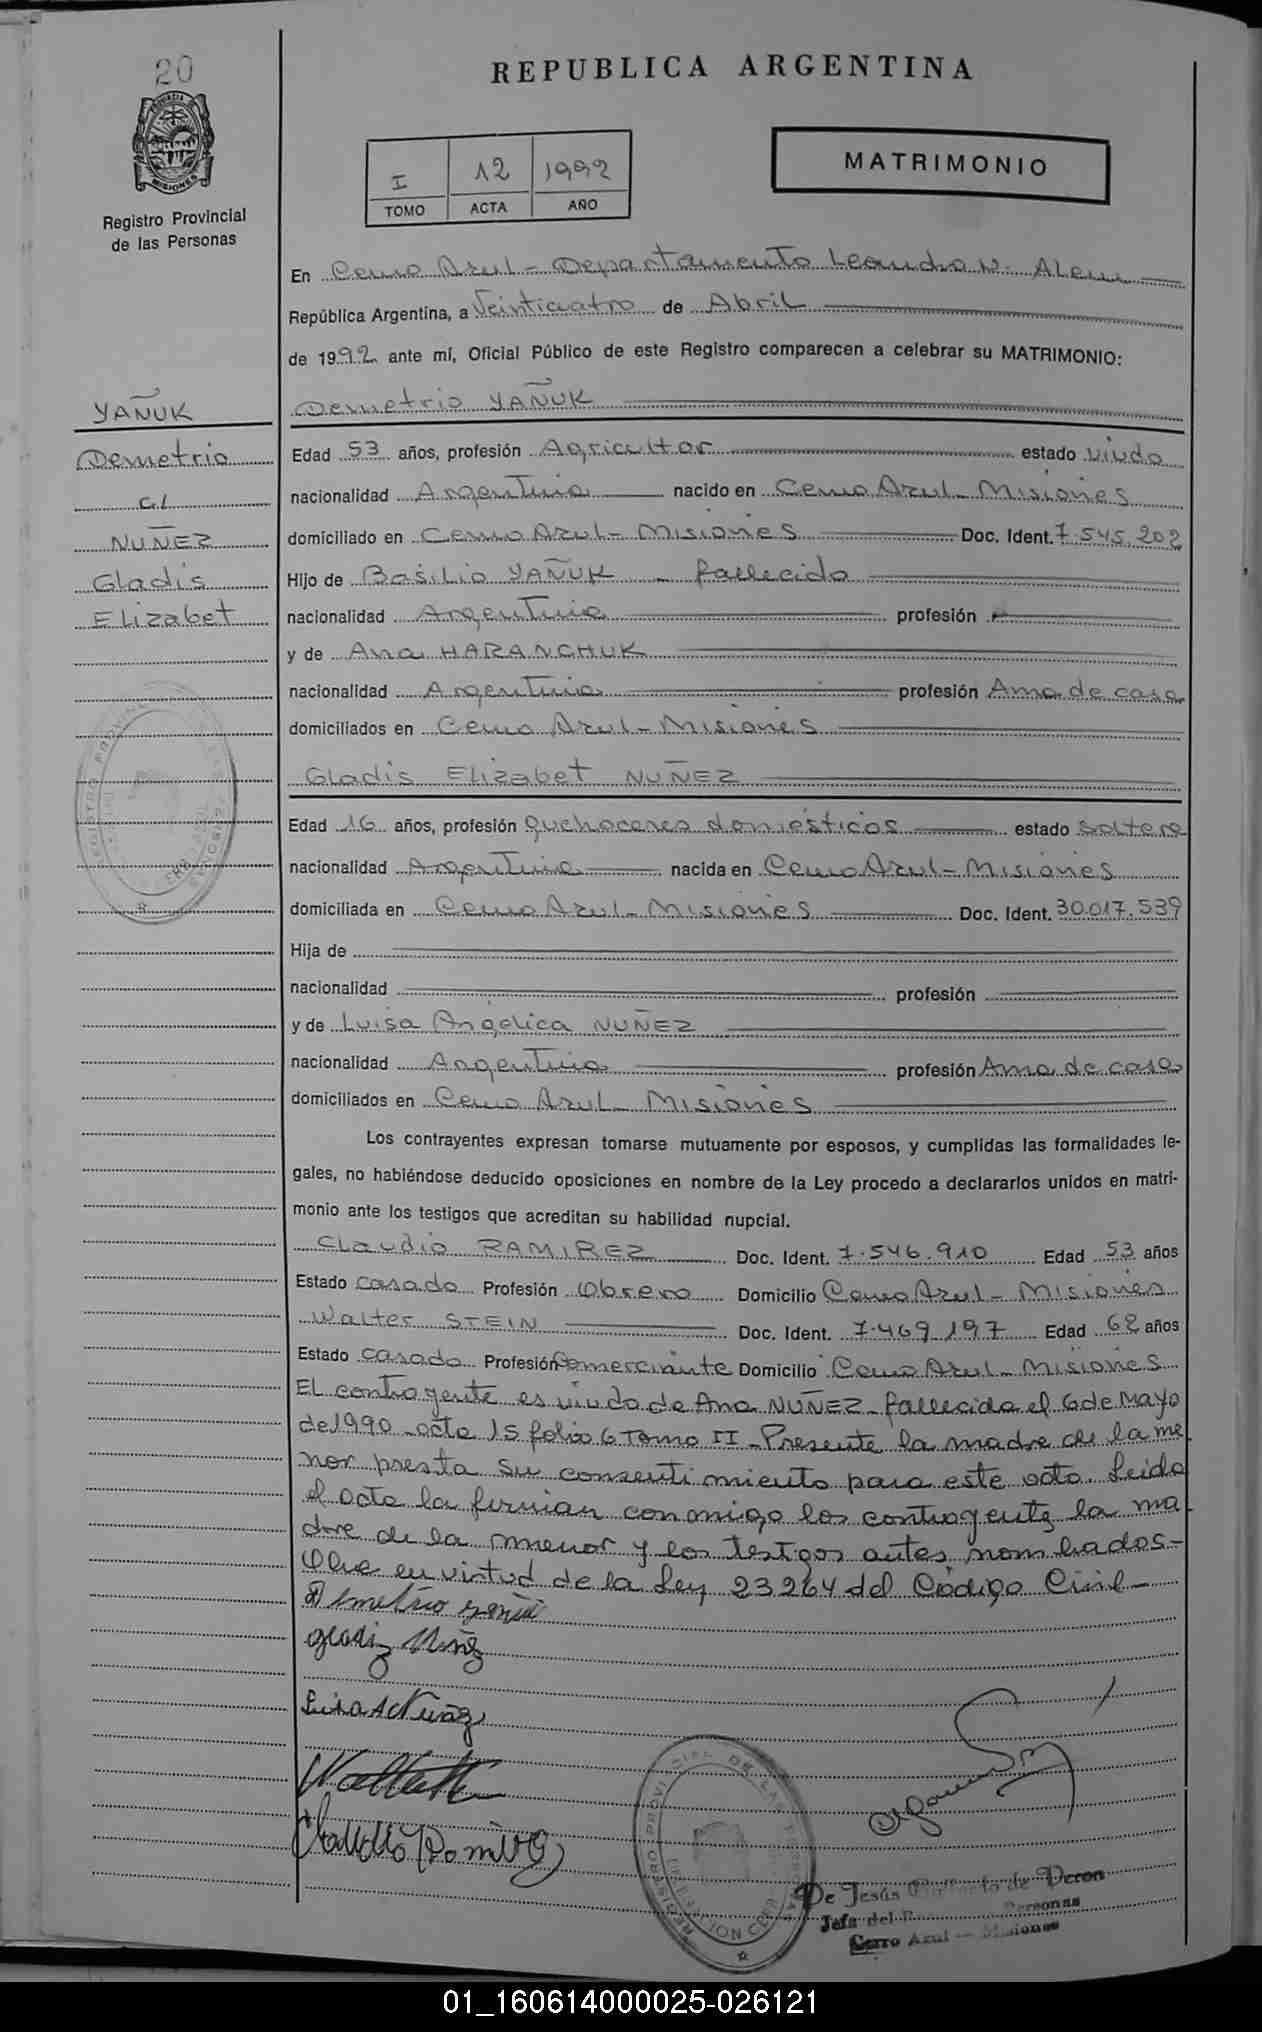 20
REPUBLICA ARGENTINA
PROVINCIA DE MISIONES
Registro Provincial
de las Personas
I 12 1992
TOMO ACTA AÑO
MATRIMONIO
En Cerro Azul - Departamento Leandro N. Alem
República Argentina, a Veinticuatro de Abril
de 1992 ante mí, Oficial Público de este Registro comparecen a celebrar su MATRIMONIO:
YAÑUK
Demetrio
c/
NUÑEZ
Gladis
Elizabet
Demetrio YAÑUK
Edad 53 años, profesión Agricultor estado viudo
nacionalidad Argentina nacido en Cerro Azul - Misiones
domiciliado en Cerro Azul - Misiones Doc. Ident. 7.545.202
Hijo de Basilio YAÑUK - fallecido
nacionalidad Argentina profesión
y de Ana HARANCHUK
nacionalidad Argentina profesión Ama de casa
domiciliados en Cerro Azul - Misiones
Gladis Elizabet NUÑEZ
Edad 16 años, profesión quehaceres domésticos estado soltera
nacionalidad Argentina nacida en Cerro Azul - Misiones
domiciliada en Cerro Azul - Misiones Doc. Ident. 30.017.539
Hija de
nacionalidad profesión
y de Luisa Angélica NUÑEZ
nacionalidad Argentina profesión Ama de casa
domiciliados en Cerro Azul - Misiones
Los contrayentes expresan tomarse mutuamente por esposos, y cumplidas las formalidades le-
gales, no habiéndose deducido oposiciones en nombre de la Ley procedo a declararlos unidos en matri-
monio ante los testigos que acreditan su habilidad nupcial.
Claudio RAMIREZ Doc. Ident. 7.546.910 Edad 53 años
Estado casado Profesión Obrero Domicilio Cerro Azul - Misiones
Walter STEIN Doc. Ident. 7.469.197 Edad 62 años
Estado casado Profesión Comerciante Domicilio Cerro Azul - Misiones
El contrayente es viudo de Ana NUÑEZ - fallecida el 6 de Mayo
de 1990 - acta 15 folio 6 Tomo II - Presente la madre de la me
nor presta su consentimiento para este acto. Leida
el acta la firman conmigo los contrayente, la ma
dre de la menor y los testigos antes nombrados -
Que en virtud de la Ley 23264 del Código Civil -
Demetrio
Gladiz Nuñez
Luisa A Nuñez
Ramirez
REGISTRO PROVINCIAL DE LAS PERSONAS
De Jesús de Peron
Jefa del Personas
Cerro Azul - Misiones
01_160614000025-026121